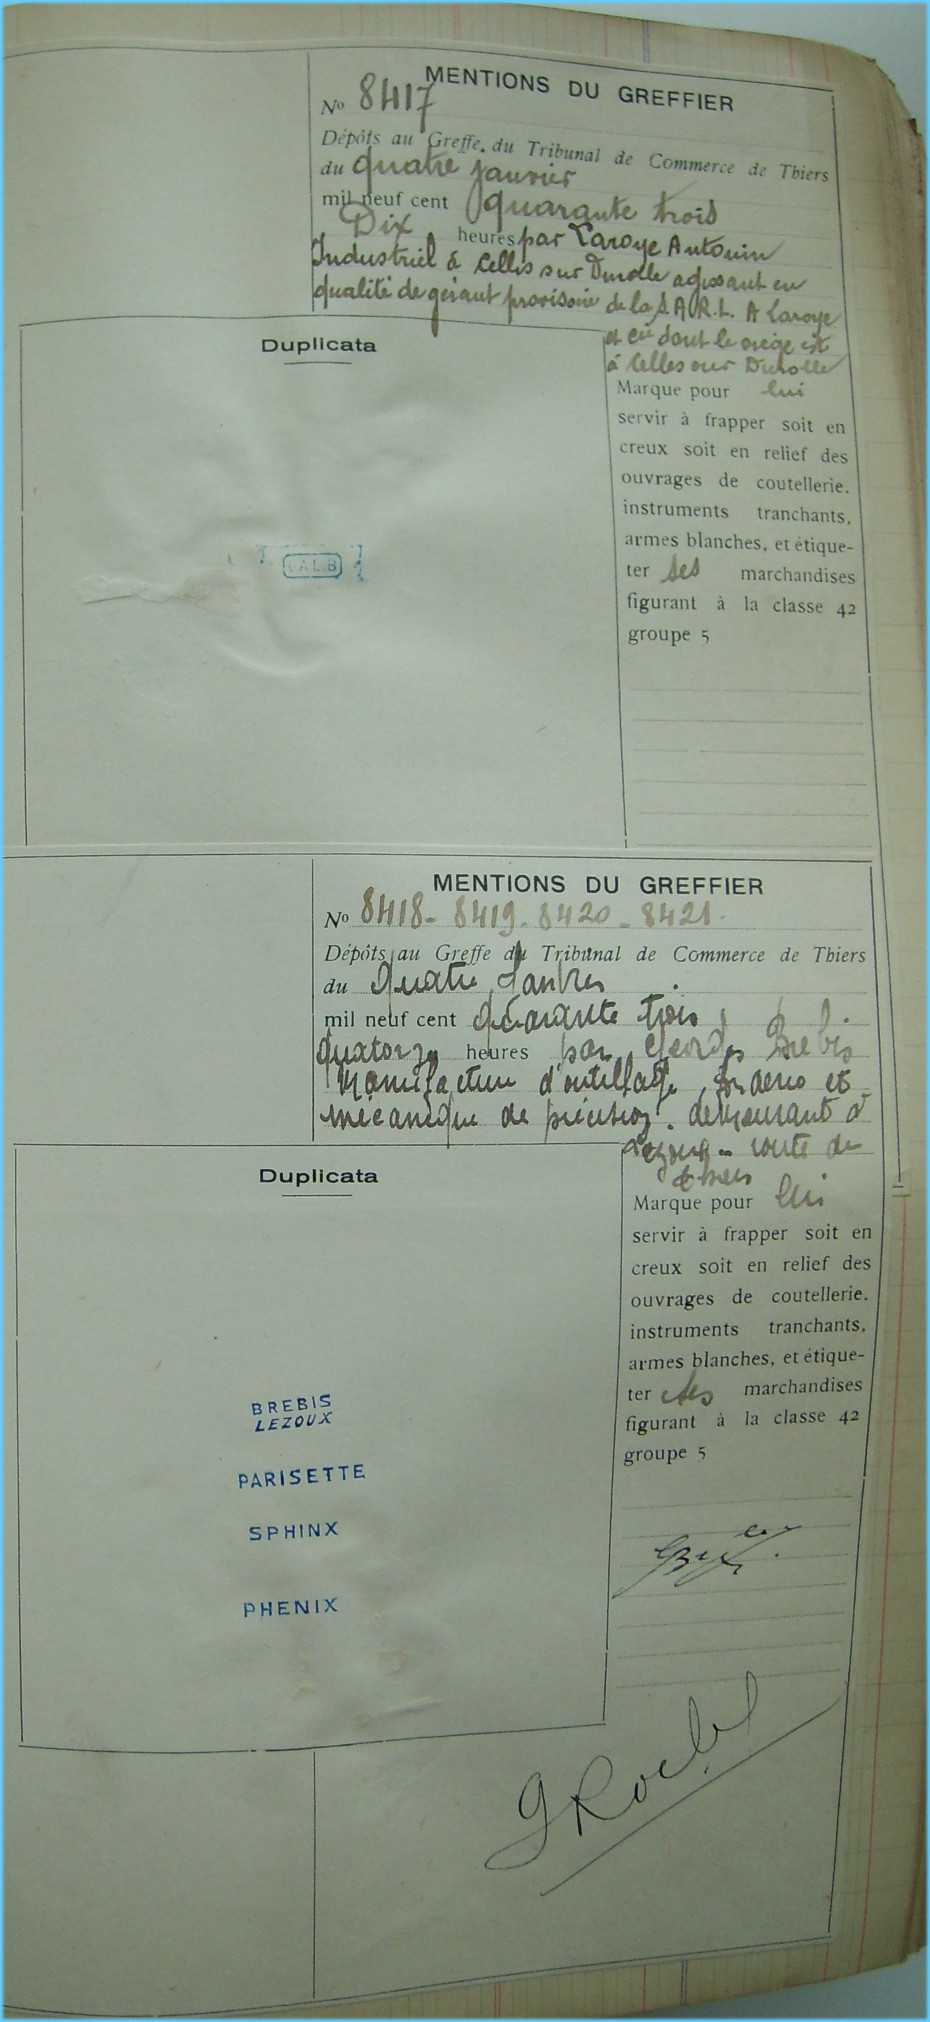 MENTIONS DU GREFFIER
No 8417
Dépôts au Greffe du Tribunal de Commerce de Thiers
du quatre janvier
mil neuf cent quarante trois
Dix heures par Laroye Antonin
Industriel à Celles sur Durolle agissant en
qualité de gérant provisoire de la S.A.R.L. A Laroye
et Cie dont le siège est
à Celles sur Durolle
Duplicata
Marque pour lui
servir à frapper soit en
creux soit en relief des
ouvrages de coutellerie.
instruments tranchants,
armes blanches, et étique-
ter ses marchandises
figurant à la classe 42
groupe 5
AL.B
MENTIONS DU GREFFIER
No 8418 - 8419 - 8420 - 8421.
Dépôts au Greffe du Tribunal de Commerce de Thiers
du quatre Janvier
mil neuf cent quarante trois
quatorze heures par Georges Brebis
Manufacture d'outillage, et
mécanique de précision. demeurant à
Lezoux - route de
Thiers
Duplicata
Marque pour lui
servir à frapper soit en
creux soit en relief des
ouvrages de coutellerie.
instruments tranchants,
armes blanches, et étique-
ter ses marchandises
figurant à la classe 42
groupe 5
BREBIS
LEZOUX
PARISETTE
SPHINX
PHENIX